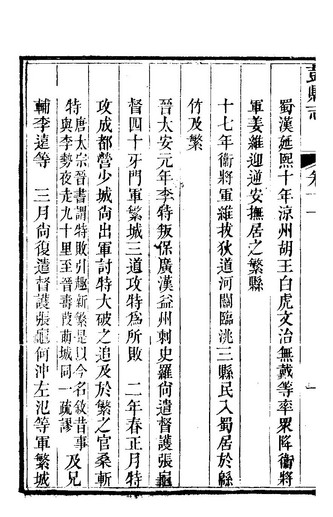 彭縣志 卷十一 一
蜀漢延熙十年涼州胡王白虎文治無戴等率眾降衛將
軍姜維迎逆安撫居之繁縣
十七年衛將軍維拔狄道河關臨洮三縣民入蜀居於緜
竹及繁
晉太安元年李特叛保廣漢益州刺史羅尚遣督護張龜
督四十牙門軍繁城三道攻特爲所敗 二年春正月特
攻成都營少城尚出軍討特大破之追及於繁之官桑斬
特唐太宗晉書謂特敗引趨新繁是以今名敘昔事及兄
與李勢夜走九十里至晉壽葭萌城同一疏謬
輔李遠等 三月尚復遣督護張龜何沖左氾等軍繁城